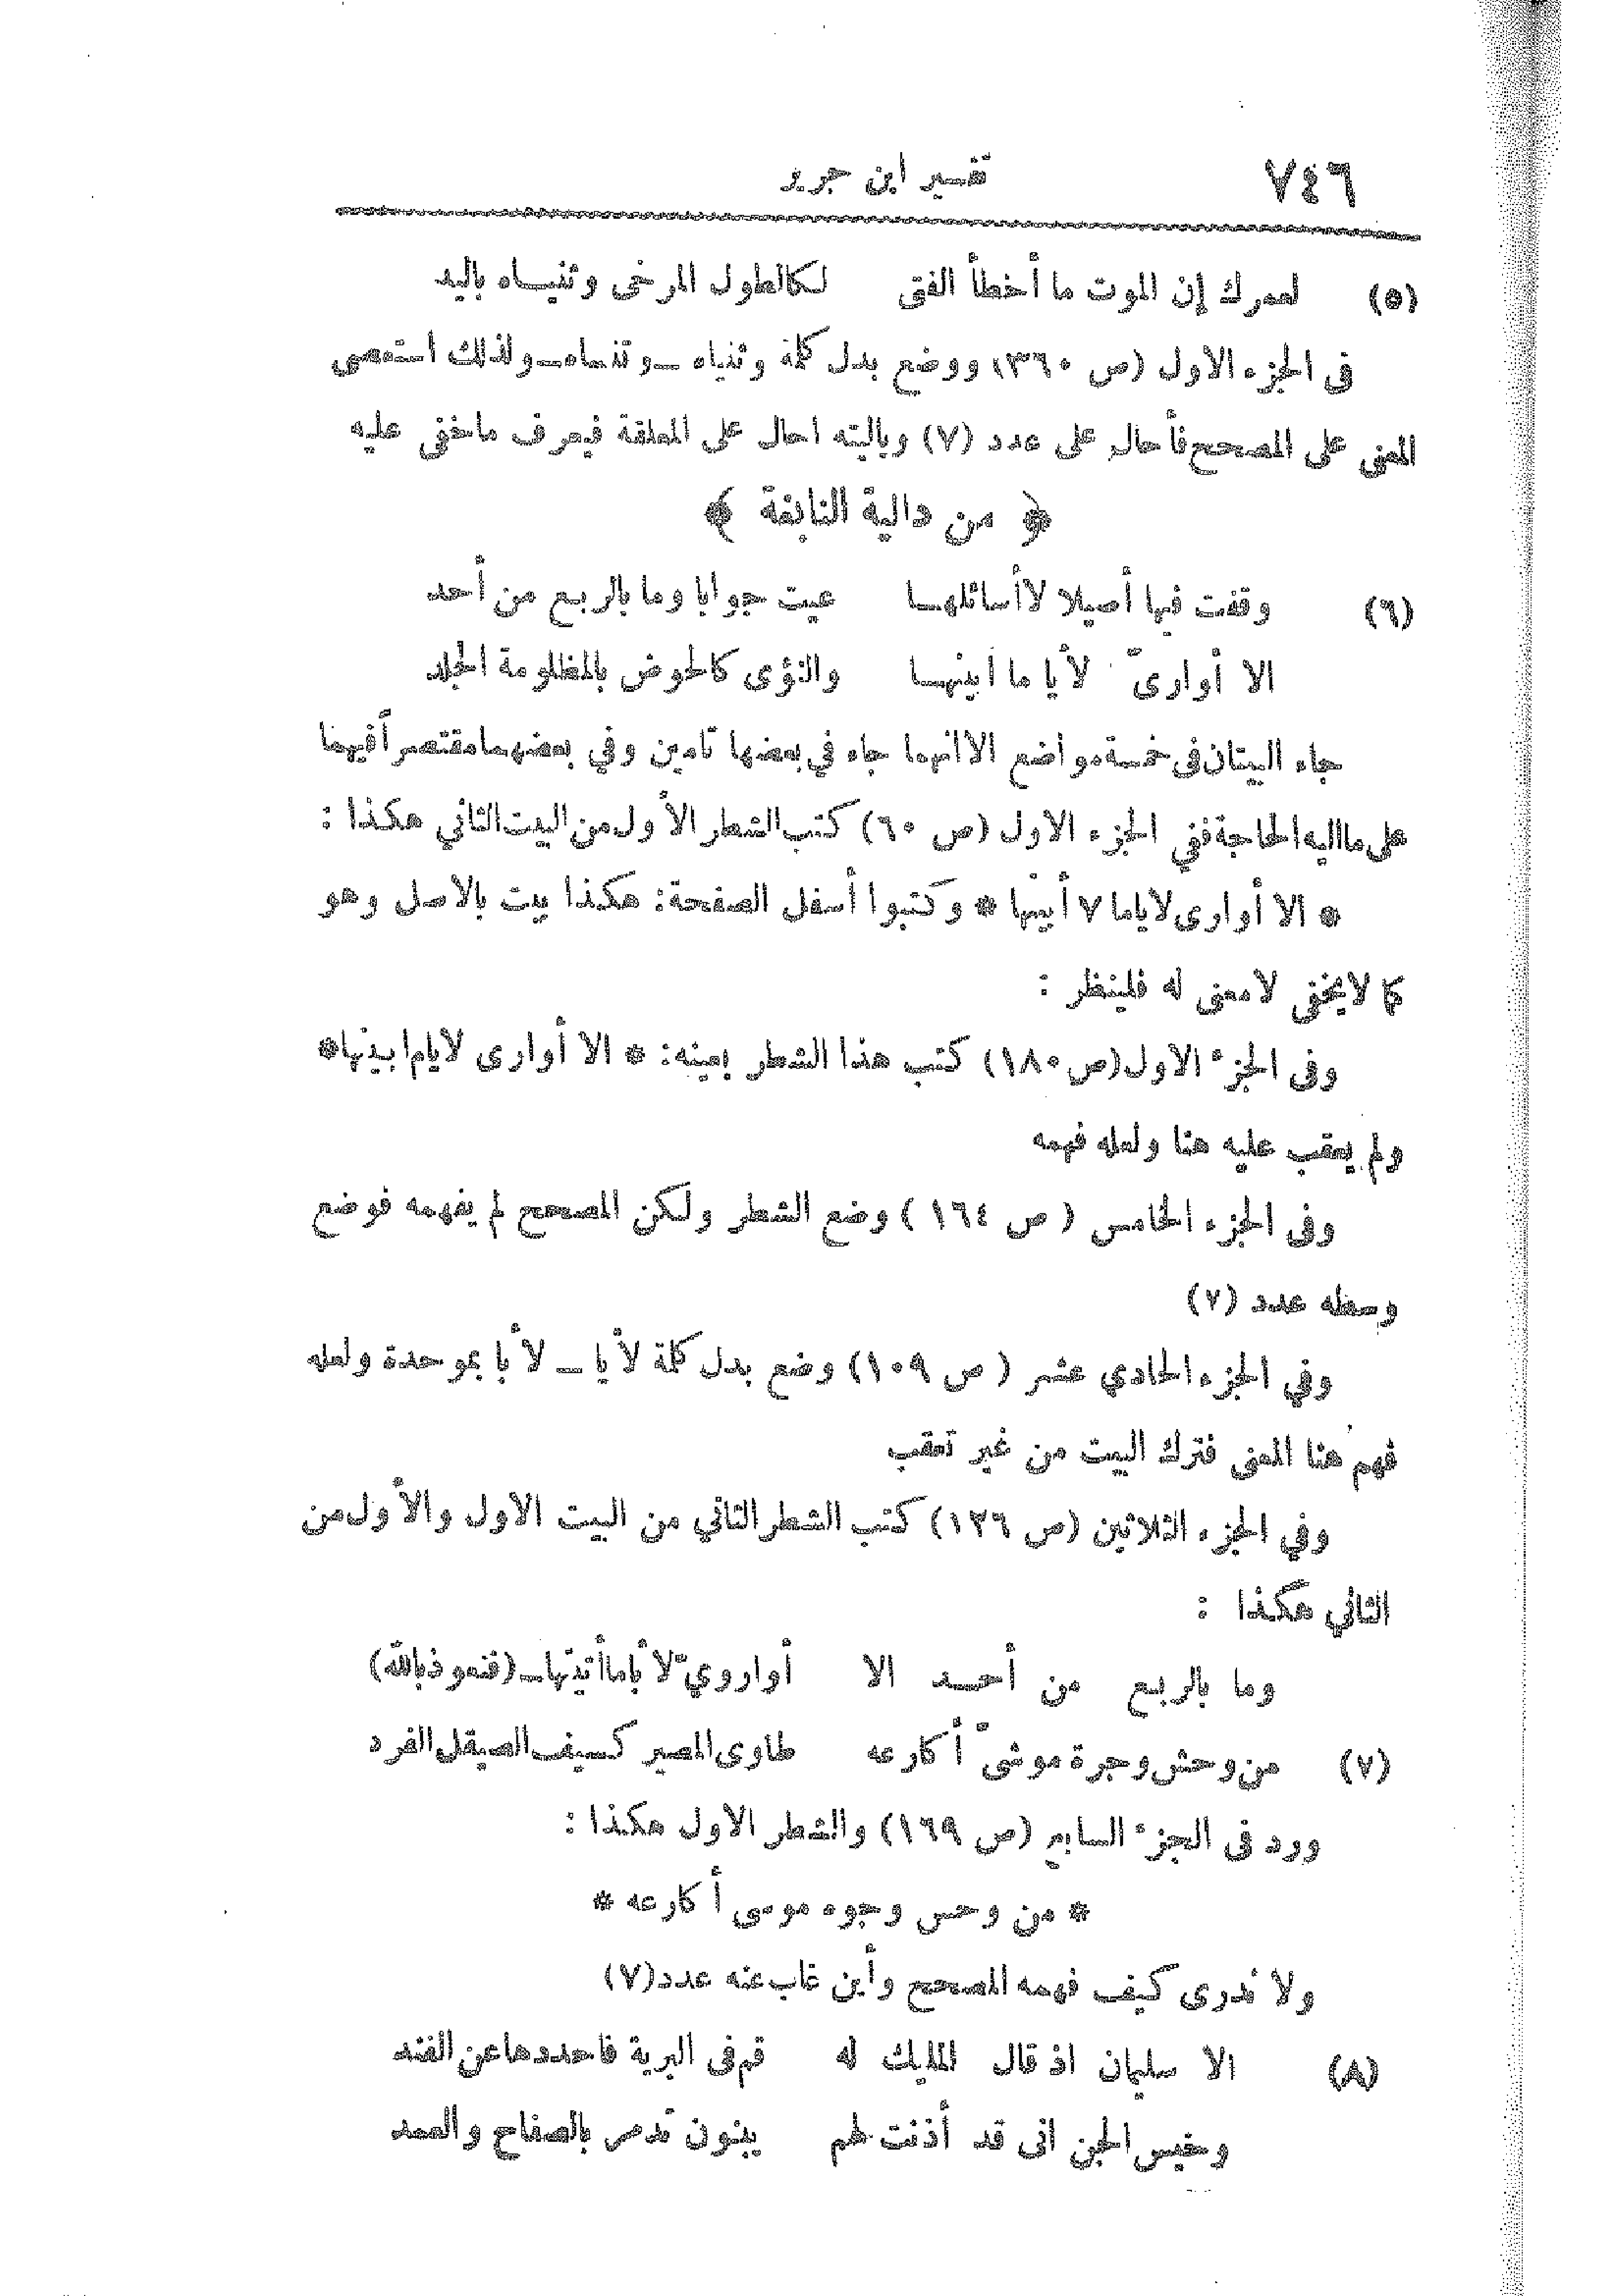 ٧٤٦ تفسير ابن جرير
(٥) لعمرك إن الموت ما أخطأ الفتى لكالطول المرخى وثنيـاه باليد
فى الجزء الاول (ص ٣٦٠) ووضع بدل كلمة وثنياه ــ وتنساه ــ ولذلك استعصى
المعنى على المصحح فأحال على عدد (٧) وياليته احال على المعلقة فيعرف ماخفى عليه
﴿ من دالية النابغة ﴾
(٦) وقفت فيها أصيلا لاأسائلهـا عيت جوابا وما بالربع من أحد
الا أوارىّ لأيا ما أبينهـا والنؤى كالحوض بالمظلومة الجلد
جاء البيتان فى خمسة مواضع الا انهما جاء في بعضها تامين وفي بعضهما مقتصراً فيهما
على ما اليه الحاجة ففي الجزء الاول (ص ٦٠) كتب الشطر الأول من البيت الثاني هكذا :
* الا أوارى لاياما ٧ أبينها * وكتبوا أسفل الصفحة: هكذا بيت بالاصل وهو
كما لايخفى لامعنى له فلينظر :
وفى الجزء الاول (ص ١٨٠) كتب هذا الشطر بعينه: * الا أوارى لايام ابينها *
ولم يعقب عليه هنا ولعله فهمه
وفى الجزء الخامس ( ص ١٦٤ ) وضع الشطر ولكن المصحح لم يفهمه فوضع
وسطه عدد (٧)
وفي الجزء الحادي عشر ( ص ١٠٩) وضع بدل كلمة لأيا ــ لأبا بموحدة ولعله
فهم هنا المعنى فترك البيت من غير تعقب
وفي الجزء الثلاثين (ص ١٢٦) كتب الشطر الثاني من البيت الاول والأول من
الثاني هكذا :
وما بالربـع من أحـد الا أوارويّ لأياما أتيتها ــ (فنعوذ بالله)
(٧) من وحش وجرة موشىّ أكارعه طاوى المصير كسيف الصيقل الفرد
ورد فى الجزء السابع (ص ١٦٩) والشطر الاول هكذا :
* من وحس وجوه موسى أكارعه *
ولا ندرى كيف فهمه المصحح وأين غاب عنه عدد (٧)
(٨) الا سليمان اذ قال المليك له قم فى البرية فاحددها عن الفند
وخيس الجن انى قد أذنت لهم يبنون تدمر بالصفاح والعمد